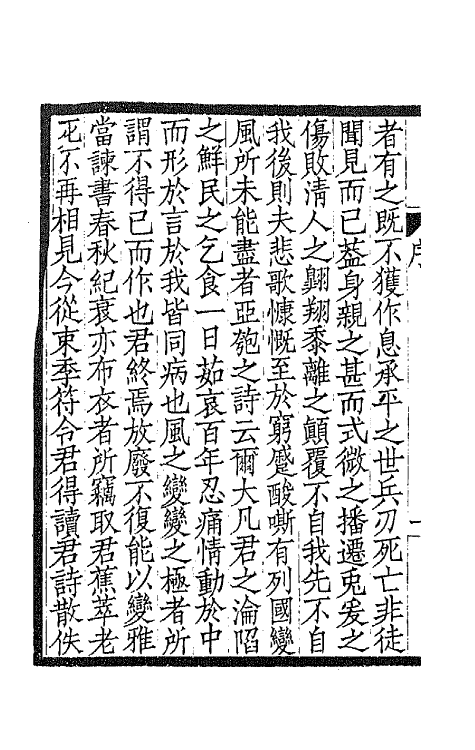 者有之既不獲作息承平之世兵刃死亡非徒
聞見而已葢身親之甚而式微之播遷兎爰之
傷敗清人之翺翔黍離之顛覆不自我先不自
我後則夫悲歌慷慨至於窮蹙酸嘶有列國變
風所未能盡者亞匏之詩云爾大凡君之淪陷
之鮮民之乞食一日茹哀百年忍痛情動於中
而形於言於我皆同病也風之變變之極者所
謂不得已而作也君終焉放廢不復能以變雅
當諫書春秋紀衰亦布衣者所竊取君蕉萃老
死不再相見今從束季符令君得讀君詩散佚
序
一